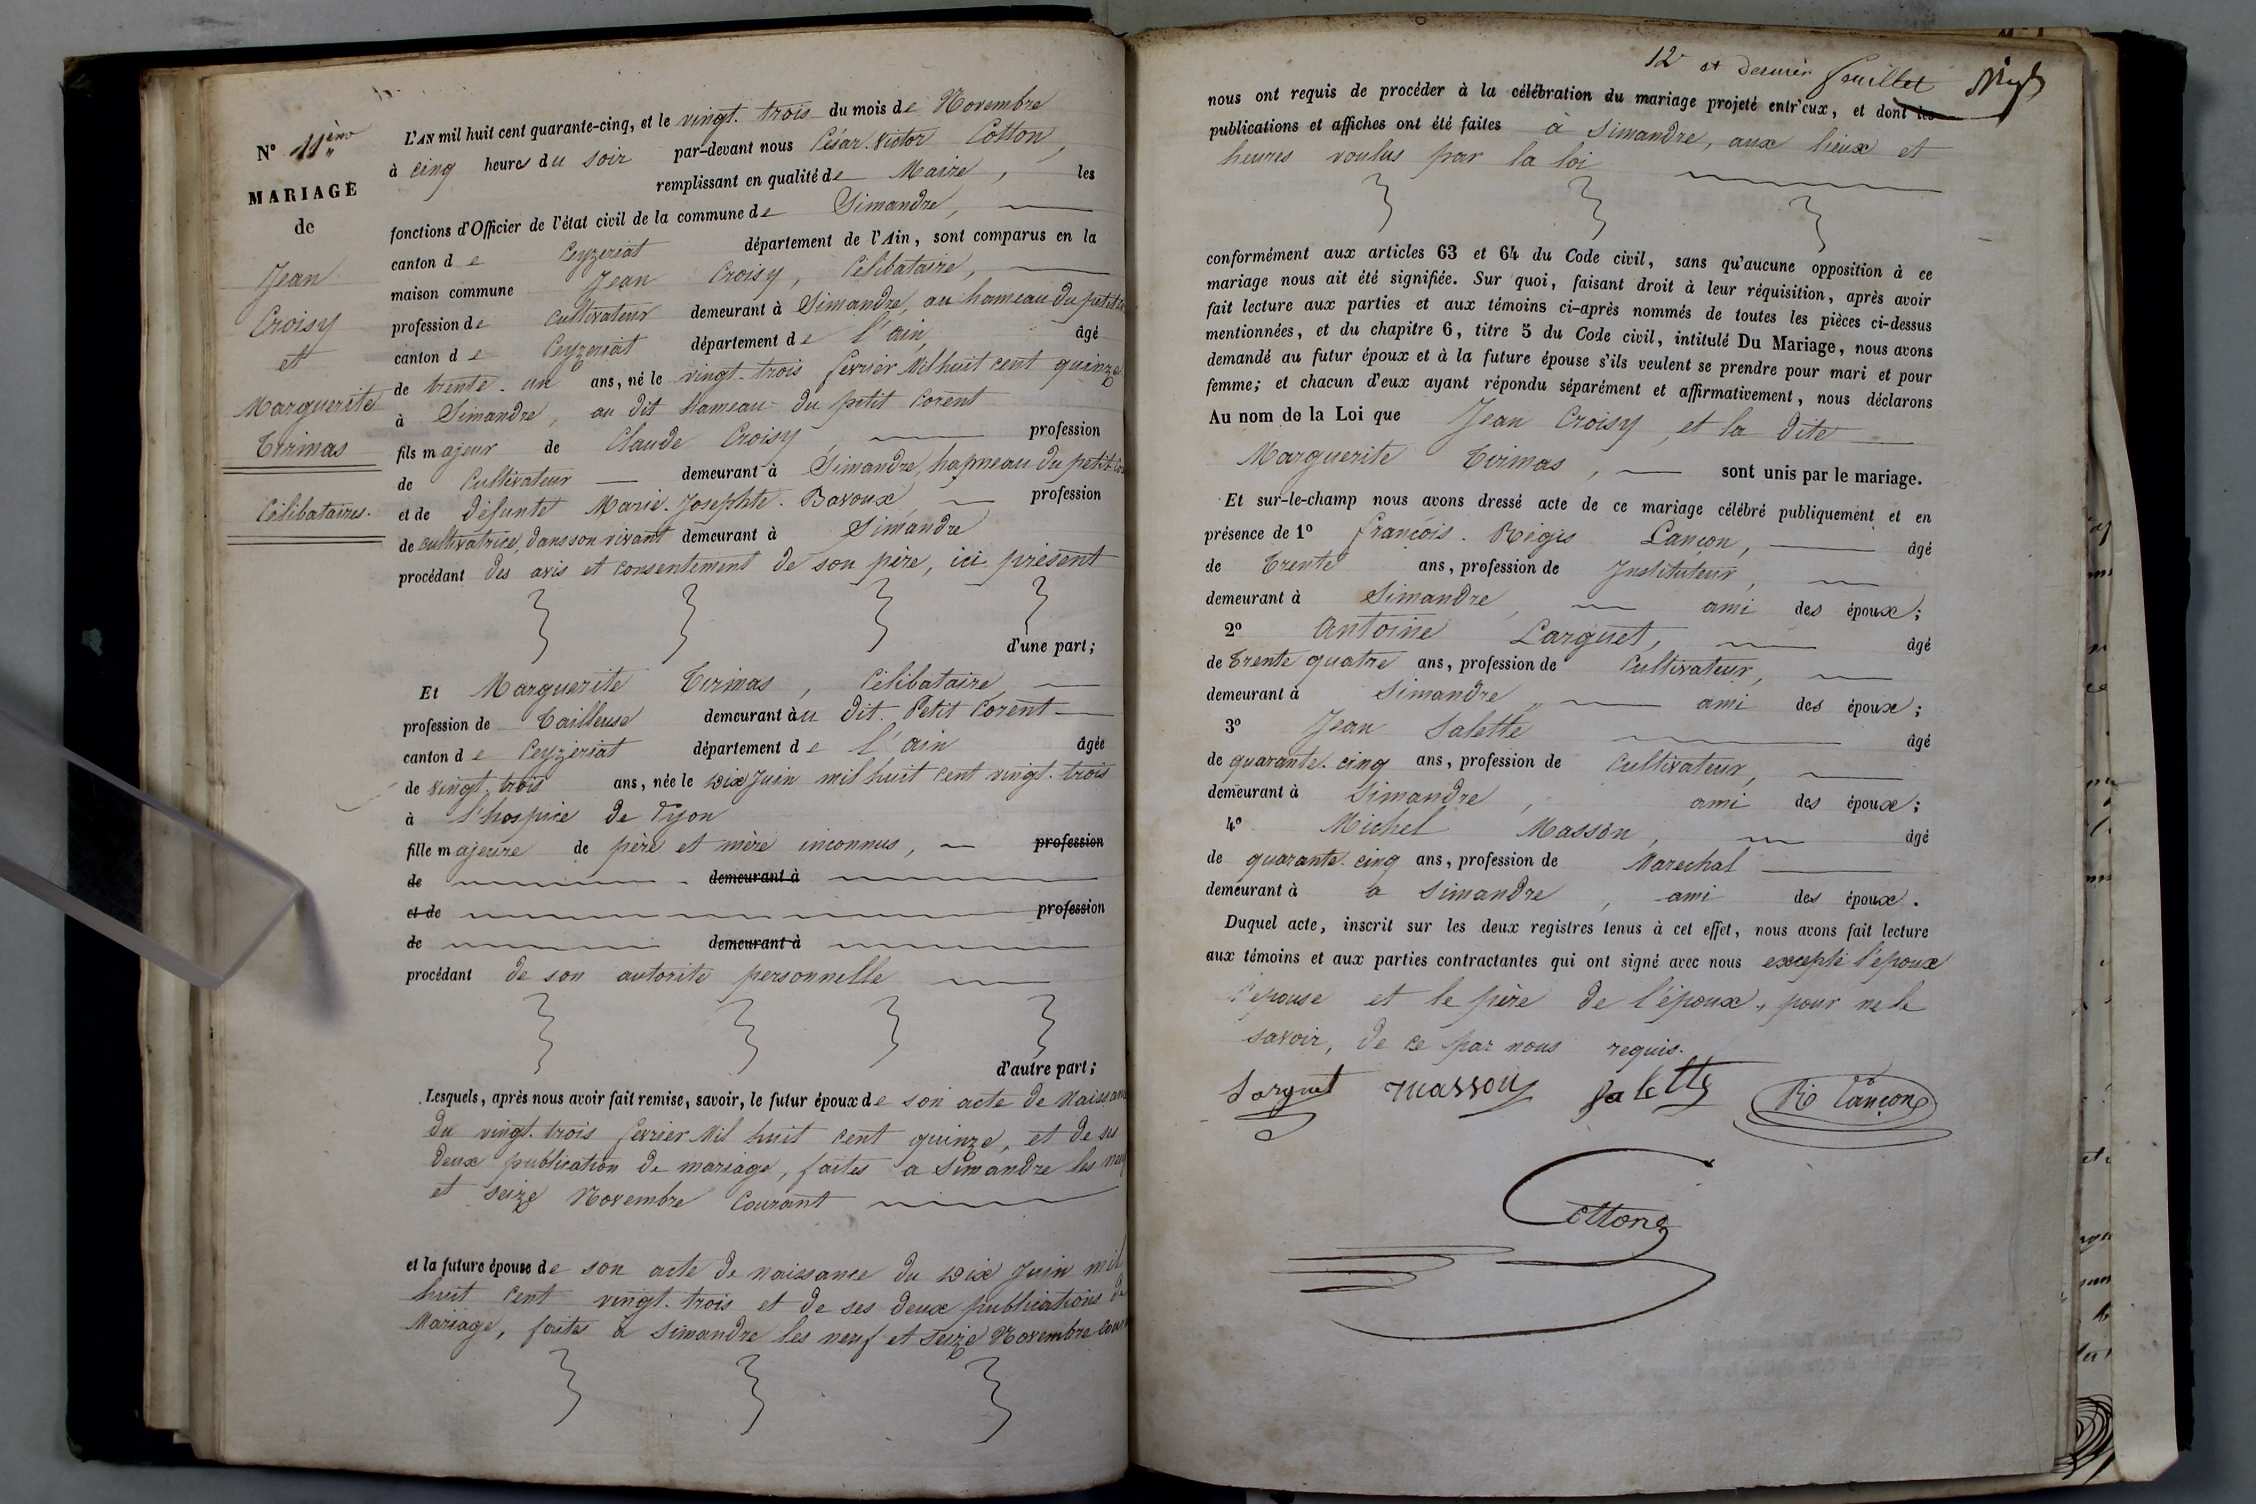 N° 11ème
MARIAGE
de
Jean
Croisy
et
Marguerite
Tirimas
Célibataires.
L'AN mil huit cent quarante-cinq, et le vingt-trois du mois de Novembre
à cinq heures du soir par-devant nous César-Victor Cotton,
remplissant en qualité de Maire, les
fonctions d'Officier de l'état civil de la commune de Simandre,
canton de Ceyzeriat département de l'Ain, sont comparus en la
maison commune Jean Croisy, Célibataire,
profession de cultivateur demeurant à Simandre, au hameau du petit
canton de Ceyzeriat département de l'ain, âgé
de trente-un ans, né le vingt-trois fevrier Mil huit cent quinze
à Simandre, au dit hameau du petit Corent
fils majeur de Claude Croisy, profession
de Cultivateur demeurant à Simandre, hameau du petit
et de défunte Marie-Josephte Bavoux profession
de cultivatrice, dans son vivant demeurant à Simandre
procédant des avis et consentement de son père, ici présent
d'une part;
Et Marguerite Tirimas, Célibataire,
profession de Tailleuse demeurant au dit Petit Corent
canton de Ceyzériat département de l'ain âgée
de vingt-trois ans, née le dix Juin mil huit cent vingt-trois
à l'hospice de Lyon
fille majeure de père et mère inconnus, profession
de demeurant à
et de profession
de demeurant à
procédant de son autorité personnelle
d'autre part;
Lesquels, après nous avoir fait remise, savoir, le futur époux de son acte de Naissance
du vingt-trois fevrier Mil huit cent quinze, et de ses
deux publication de mariage, faites a Simandre les neuf
et seize Novembre Courant
et la future épouse de son acte de naissance du dix Juin mil
huit cent vingt-trois et de ses deux publications de
Mariage, faites à Simandre les neuf et seize Novembre
12e et dernier feuillet
nous ont requis de procéder à la célébration du mariage projeté entr'eux, et dont les
publications et affiches ont été faites à Simandre, aux lieux et
heures voulus par la loi
conformément aux articles 63 et 64 du Code civil, sans qu'aucune opposition à ce
mariage nous ait été signifiée. Sur quoi, faisant droit à leur réquisition, après avoir
fait lecture aux parties et aux témoins ci-après nommés de toutes les pièces ci-dessus
mentionnées, et du chapitre 6, titre 5 du Code civil, intitulé Du Mariage, nous avons
demandé au futur époux et à la future épouse s'ils veulent se prendre pour mari et pour
femme; et chacun d'eux ayant répondu séparément et affirmativement, nous déclarons
Au nom de la Loi que Jean Croisy, et la dite
Marguerite Tirimas, sont unis par le mariage.
Et sur-le-champ nous avons dressé acte de ce mariage célébré publiquement et en
présence de 1° françois-Régis Lançon, âgé
de Trente ans, profession de Instituteur,
demeurant à Simandre, ami des époux;
2° Antoine Larguet, âgé
de Trente quatre ans, profession de Cultivateur,
demeurant à Simandre, ami des époux;
3° Jean Salette âgé
de quarante-cinq ans, profession de Cultivateur,
demeurant à Simandre, ami des époux;
4° Michel Masson, âgé
de quarante-cinq ans, profession de Marechal
demeurant à a Simandre, ami des époux.
Duquel acte, inscrit sur les deux registres tenus à cet effet, nous avons fait lecture
aux témoins et aux parties contractantes qui ont signé avec nous excepté l'époux
l'épouse et le père de l'époux, pour ne le
savoir, de ce par nous requis.
Larguet masson Salette R Lançon
Cotton